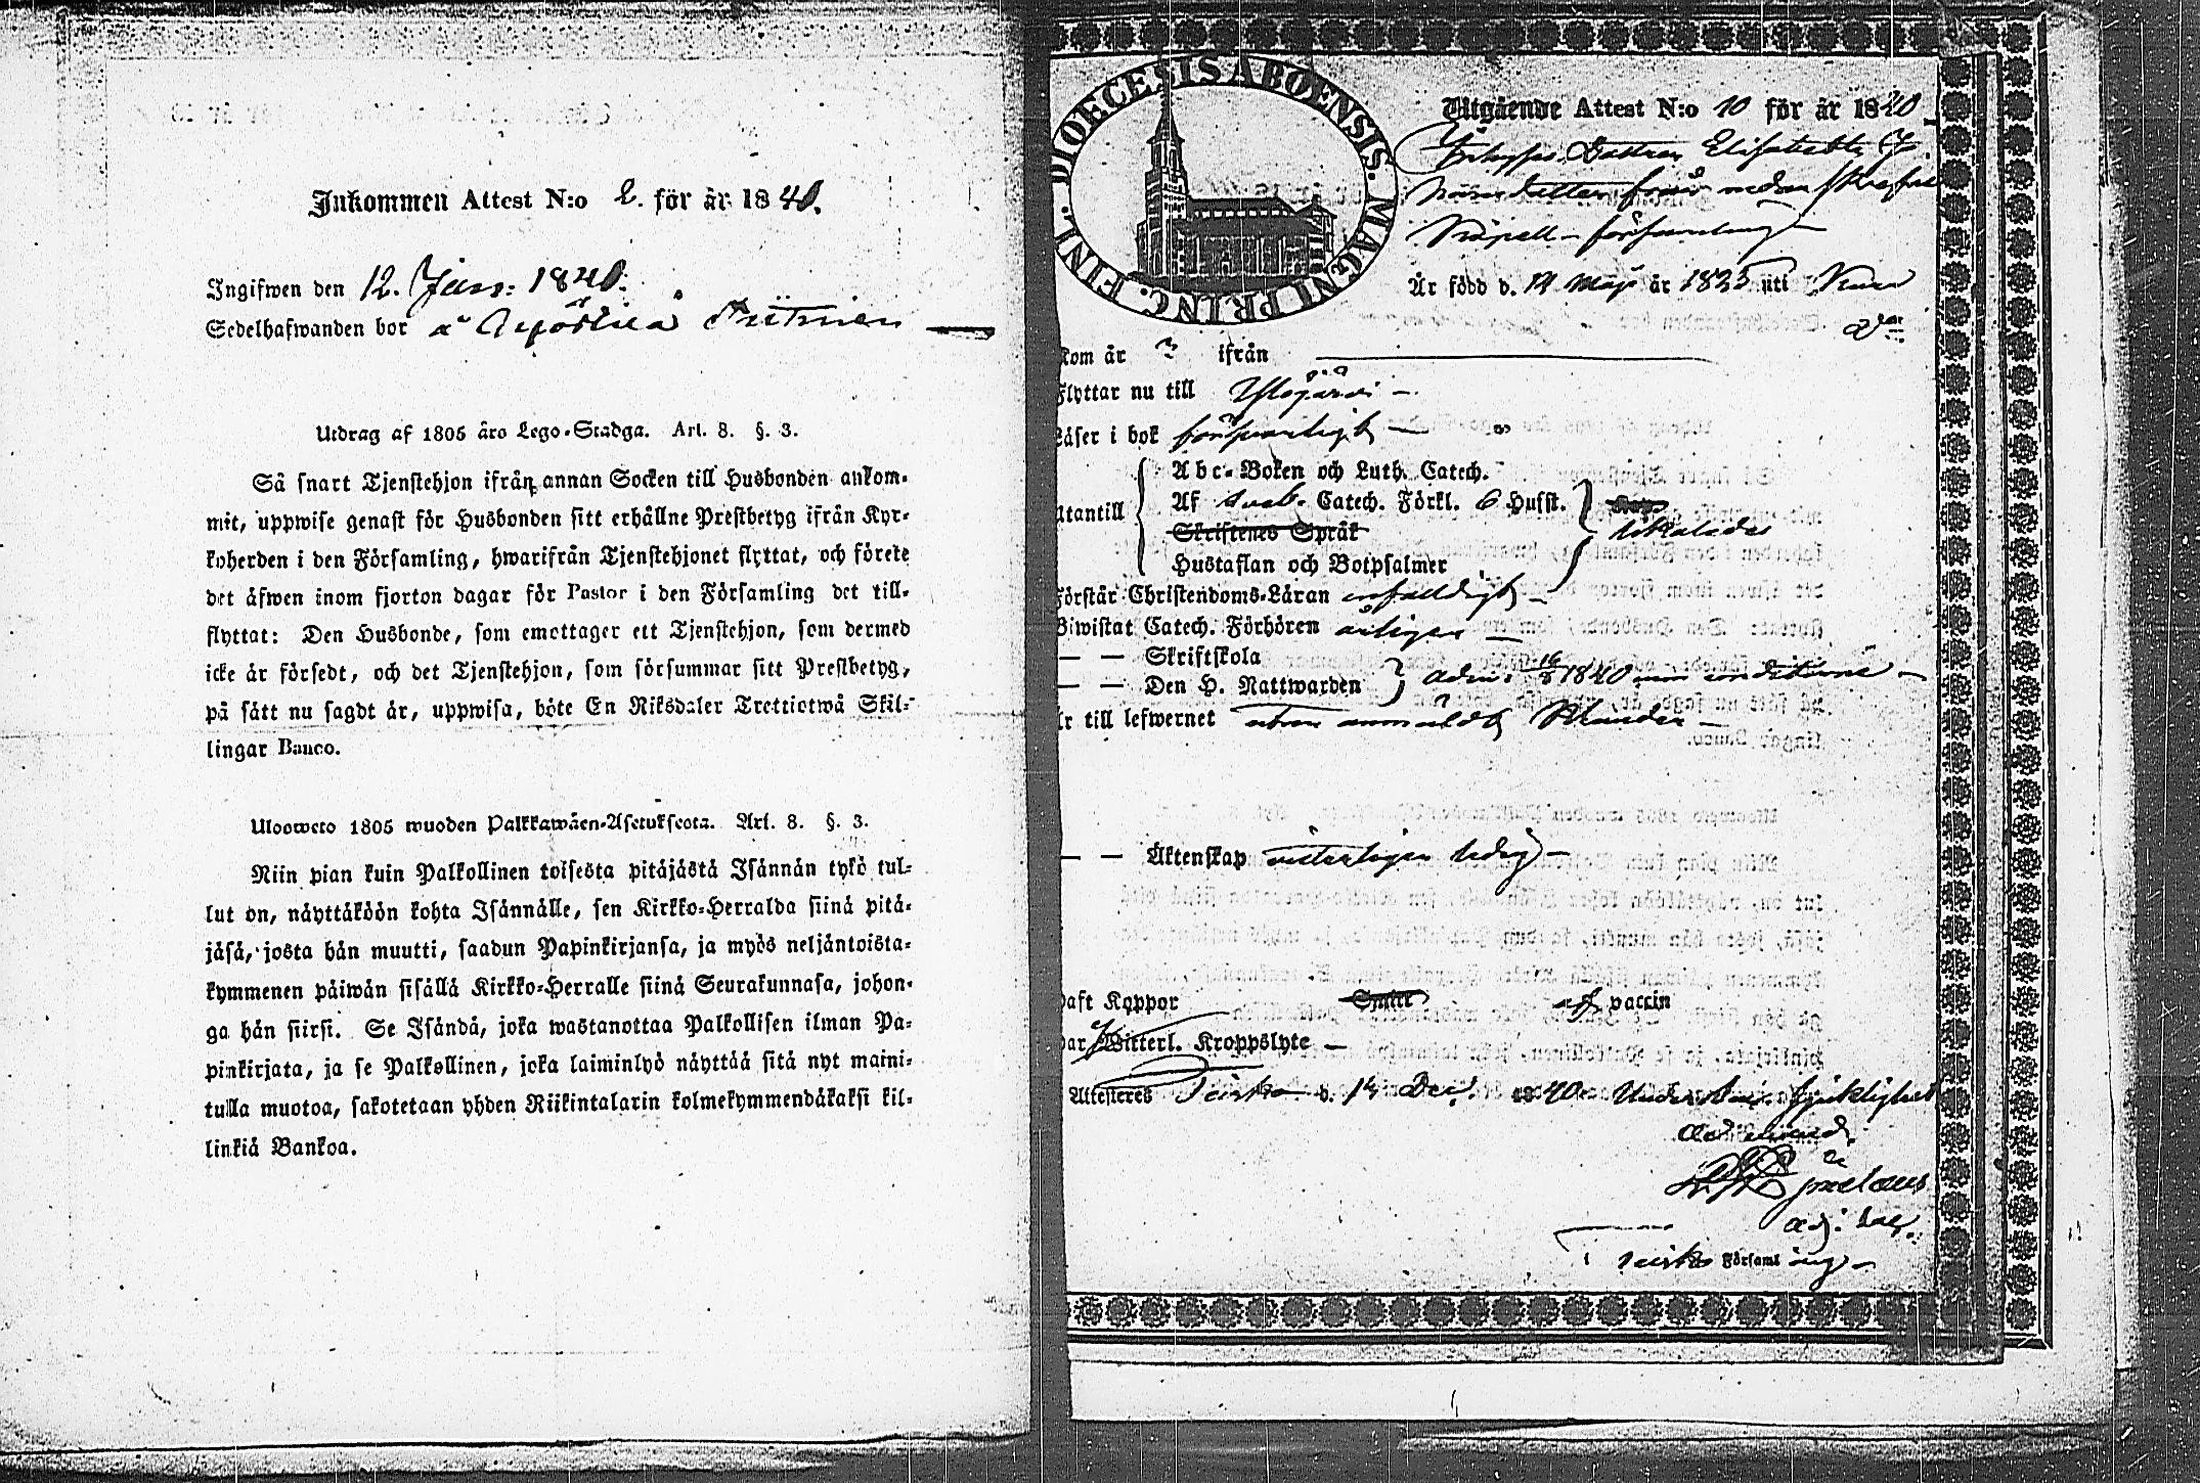 Inkommen Attest N:o 2. för år 1840.
Ingifwen den 12. Jan: 1840.
Sedelhafwanden bor å
Utdrag af 1805 års Lego-Stadga. Art. 8. §. 3.
Så snart Tjenstehjon ifrån annan Socken till Husbonden ankom-
mit, uppwise genast för Husbonden sitt erhållne Prestbetyg ifrån Kyr-
koherden i den Församling, hwarifrån Tjenstehjonet flyttat, och förete
det äfwen inom fjorton dagar för Pastor i den Församling det till-
flyttat: Den Husbonde, som emottager ett Tjenstehjon, som dermed
icke är försedt, och det Tjenstehjon, som försummar sitt Prestbetyg,
på sätt nu sagdt är, uppwisa, böte En Riksdaler Trettiotwå Skil-
lingar Banco.
Uloosweto 1805 wuoden Palkkawäen-Asetuksesta. Art. 8. §. 3.
Niin pian kuin Palkollinen toisesta pitäjästä Isännän tykö tul-
lut on, näyttäköön kohta Isännälle, sen Kirkko-Herralda siinä pitä-
jäsä, josta hän muutti, saadun Papinkirjansa, ja myös neljäntoista-
kymmenen päiwän sisällä Kirkko-Herralle siinä Seurakunnasa, johon-
ga hän siirsi. Se Isändä, joka wastanottaa Palkollisen ilman Pa-
pinkirjata, ja se Palkollinen, joka laiminlyö näyttää sitä nyt maini-
tulla muotoa, sakotetaan yhden Riikintalarin kolmekymmendäkaksi kil-
linkiä Bankoa.
DIOECESIS ABOENSIS. MAGNI PRINC. FINL.
Utgående Attest N:o 10 för år 1840
Dottren Elisabeth
Kapell-församling
Är född d. 14 Maji år 1823 uti
Kom år ? ifrån
Flyttar nu till Ylöjärvi
Läser i bok försvarligt
Utantill
Abc-Boken och Luth. Catech.
Af Sveb. Catech. Förkl. 6 Hufst.
Skriftenes Språk
Hustaflan och Botpsalmer
Förstår Christendoms-Läran enfaldigt
Biwistat Catech. Förhören årligen
— — Skriftskola
— — Den H. Nattwarden
adm: 1840
Är till lefwernet utan anmäldt klander
— — Äktenskap veterligen ledig
Haft Koppor Smitt af vaccin
Har Witterl. Kroppslyte —
Attesteres Teisko d. 14 Dec. 1840.
i Teisko Församling